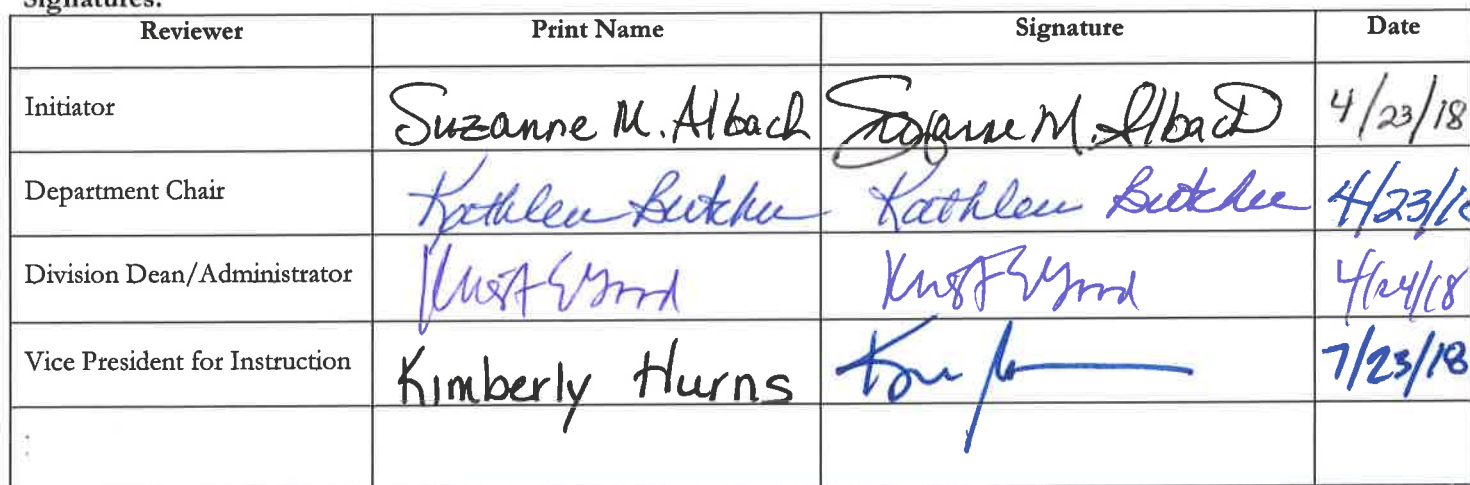 Signatures:
Reviewer Print Name Signature Date
Initiator Suzanne M. Albach Suzanne M. Albach 4/23/18
Department Chair Kathleen Butcher Kathleen Butcher 4/23/1
Division Dean/Administrator 4/24/18
Vice President for Instruction Kimberly Hurns 7/23/18